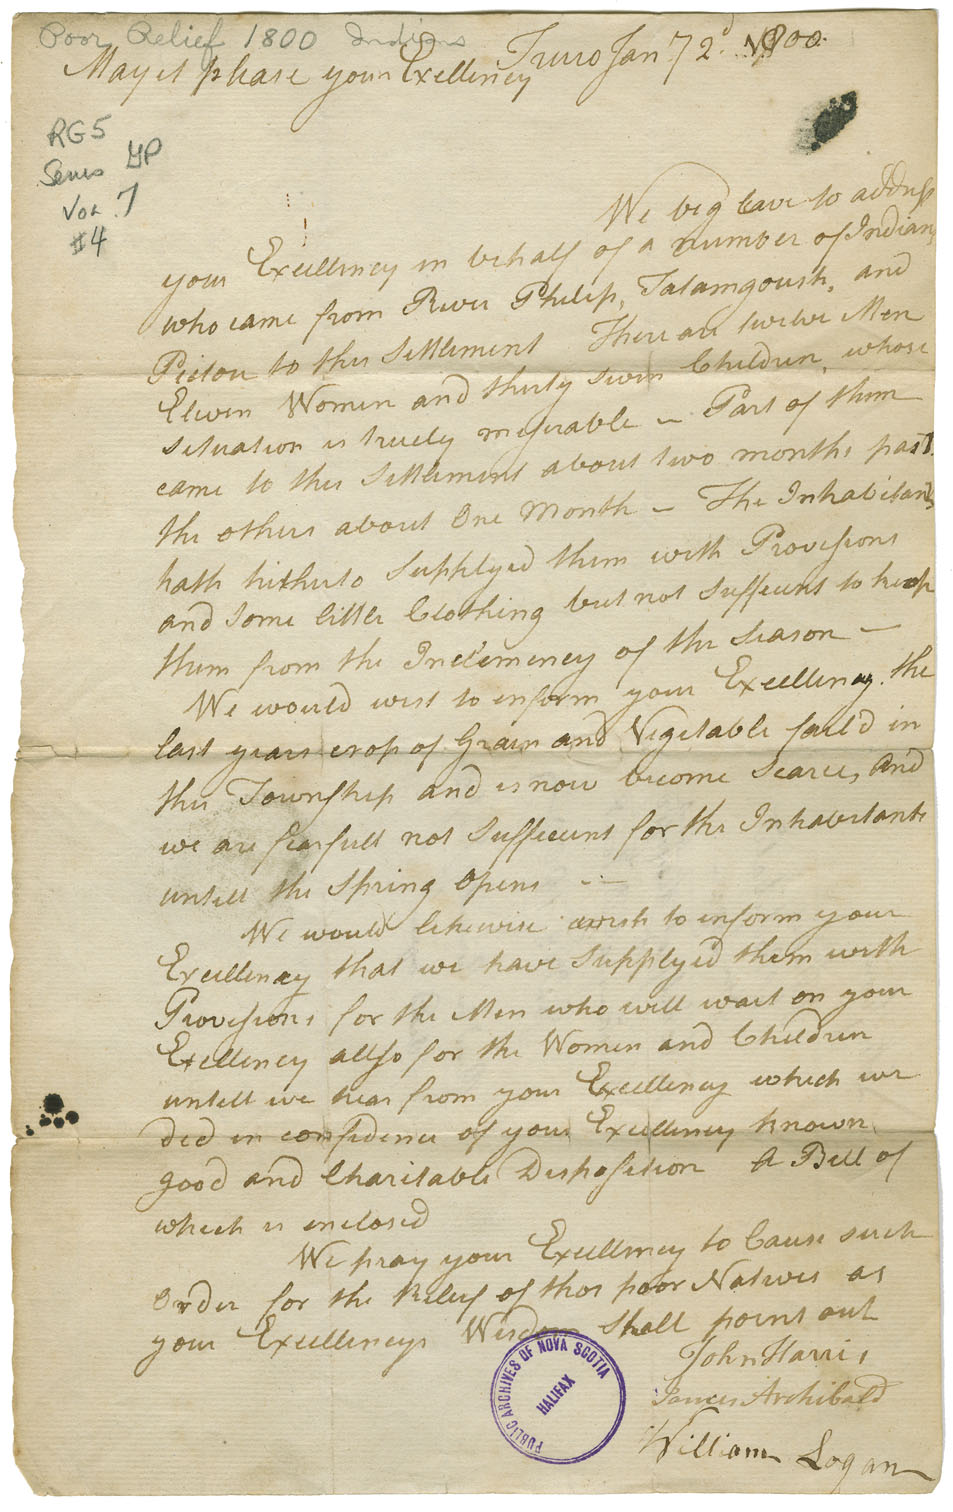 Poor Relief 1800 Indians
Truro Jany 2d 1800
May it please your Exellency
RG5
Series GP
Vol. 7
#4
We beg leave to address
your Exellency in behalf of a number of Indians
who came from River Philip, Tatamgoush, and
Pictou to this Settlement There are twelve Men
Eleven Women and thirty seven Children, whose
situation is truely miserable – Part of them
came to this Settlement about two months past
the others about One Month – The Inhabitants
hath hitherto Supplyed them with Provisions
and Some little Clothing but not Suffecent to keep
them from the Inclemency of the Season –
We would wish to inform your Excellency the
last years crop of Grain and Vegetable fail'd in
this Township and is now become Scarce, And
we are fearfull not Suffecent for the Inhabitants
untill the Spring Opens –
We would likewise wish to inform your
Excellency that we have Supplyed them with
Provisions for the Men who will wait on your
Exellency allso for the Women and Children
untill we hear from your Excellency which we
did in confidence of your Exellency known
good and Charitable Disposition A Bill of
which is enclosed
We pray your Exellency to Cause such
Order for the Relief of thos poor Natives as
your Excellencys Wisdom Shall point out
John Harris
James Archibald
William Logan
PUBLIC ARCHIVES OF NOVA SCOTIA
HALIFAX